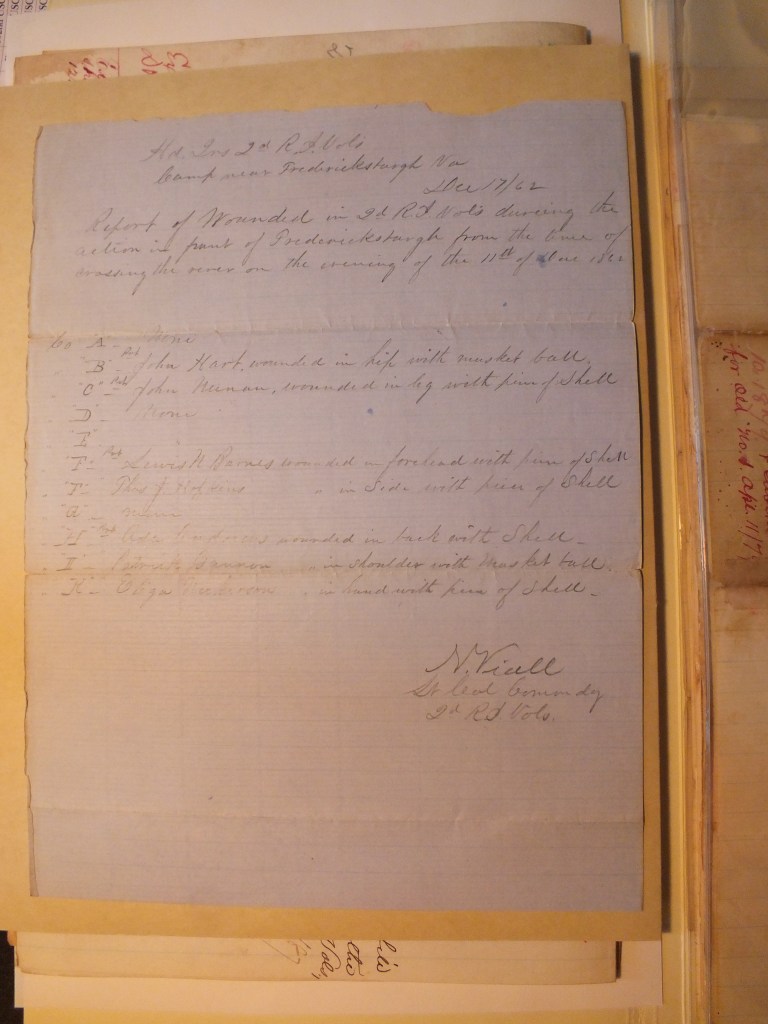 Hd. Qrs 2d R I Vols
Camp near Fredericksburgh Va
Dec 17/62
Report of Wounded in 2d R I Vols dureing the
action in front of Fredericksburgh from the time of
crossing the river on the evening of the 11th of Dec 1862
Co A - None
" B - Pvt John Hart, wounded in hip with musket ball.
" C - Pvt John wounded in leg with piece of Shell
" D - None
" E - "
" F - Pvt Lewis W Barnes wounded in forehead with piece of Shell
" F - Thos J " in Side with piece of Shell
" G - None
" H - Pvt wounded in back with Shell -
" I - Patrick " in shoulder with Musket ball.
" K - Anderson " in hand with piece of Shell -
N. Viall
Lt Col Comondg
2d R I Vols.
for old no. 1 apr. 11/7
the
Vols,